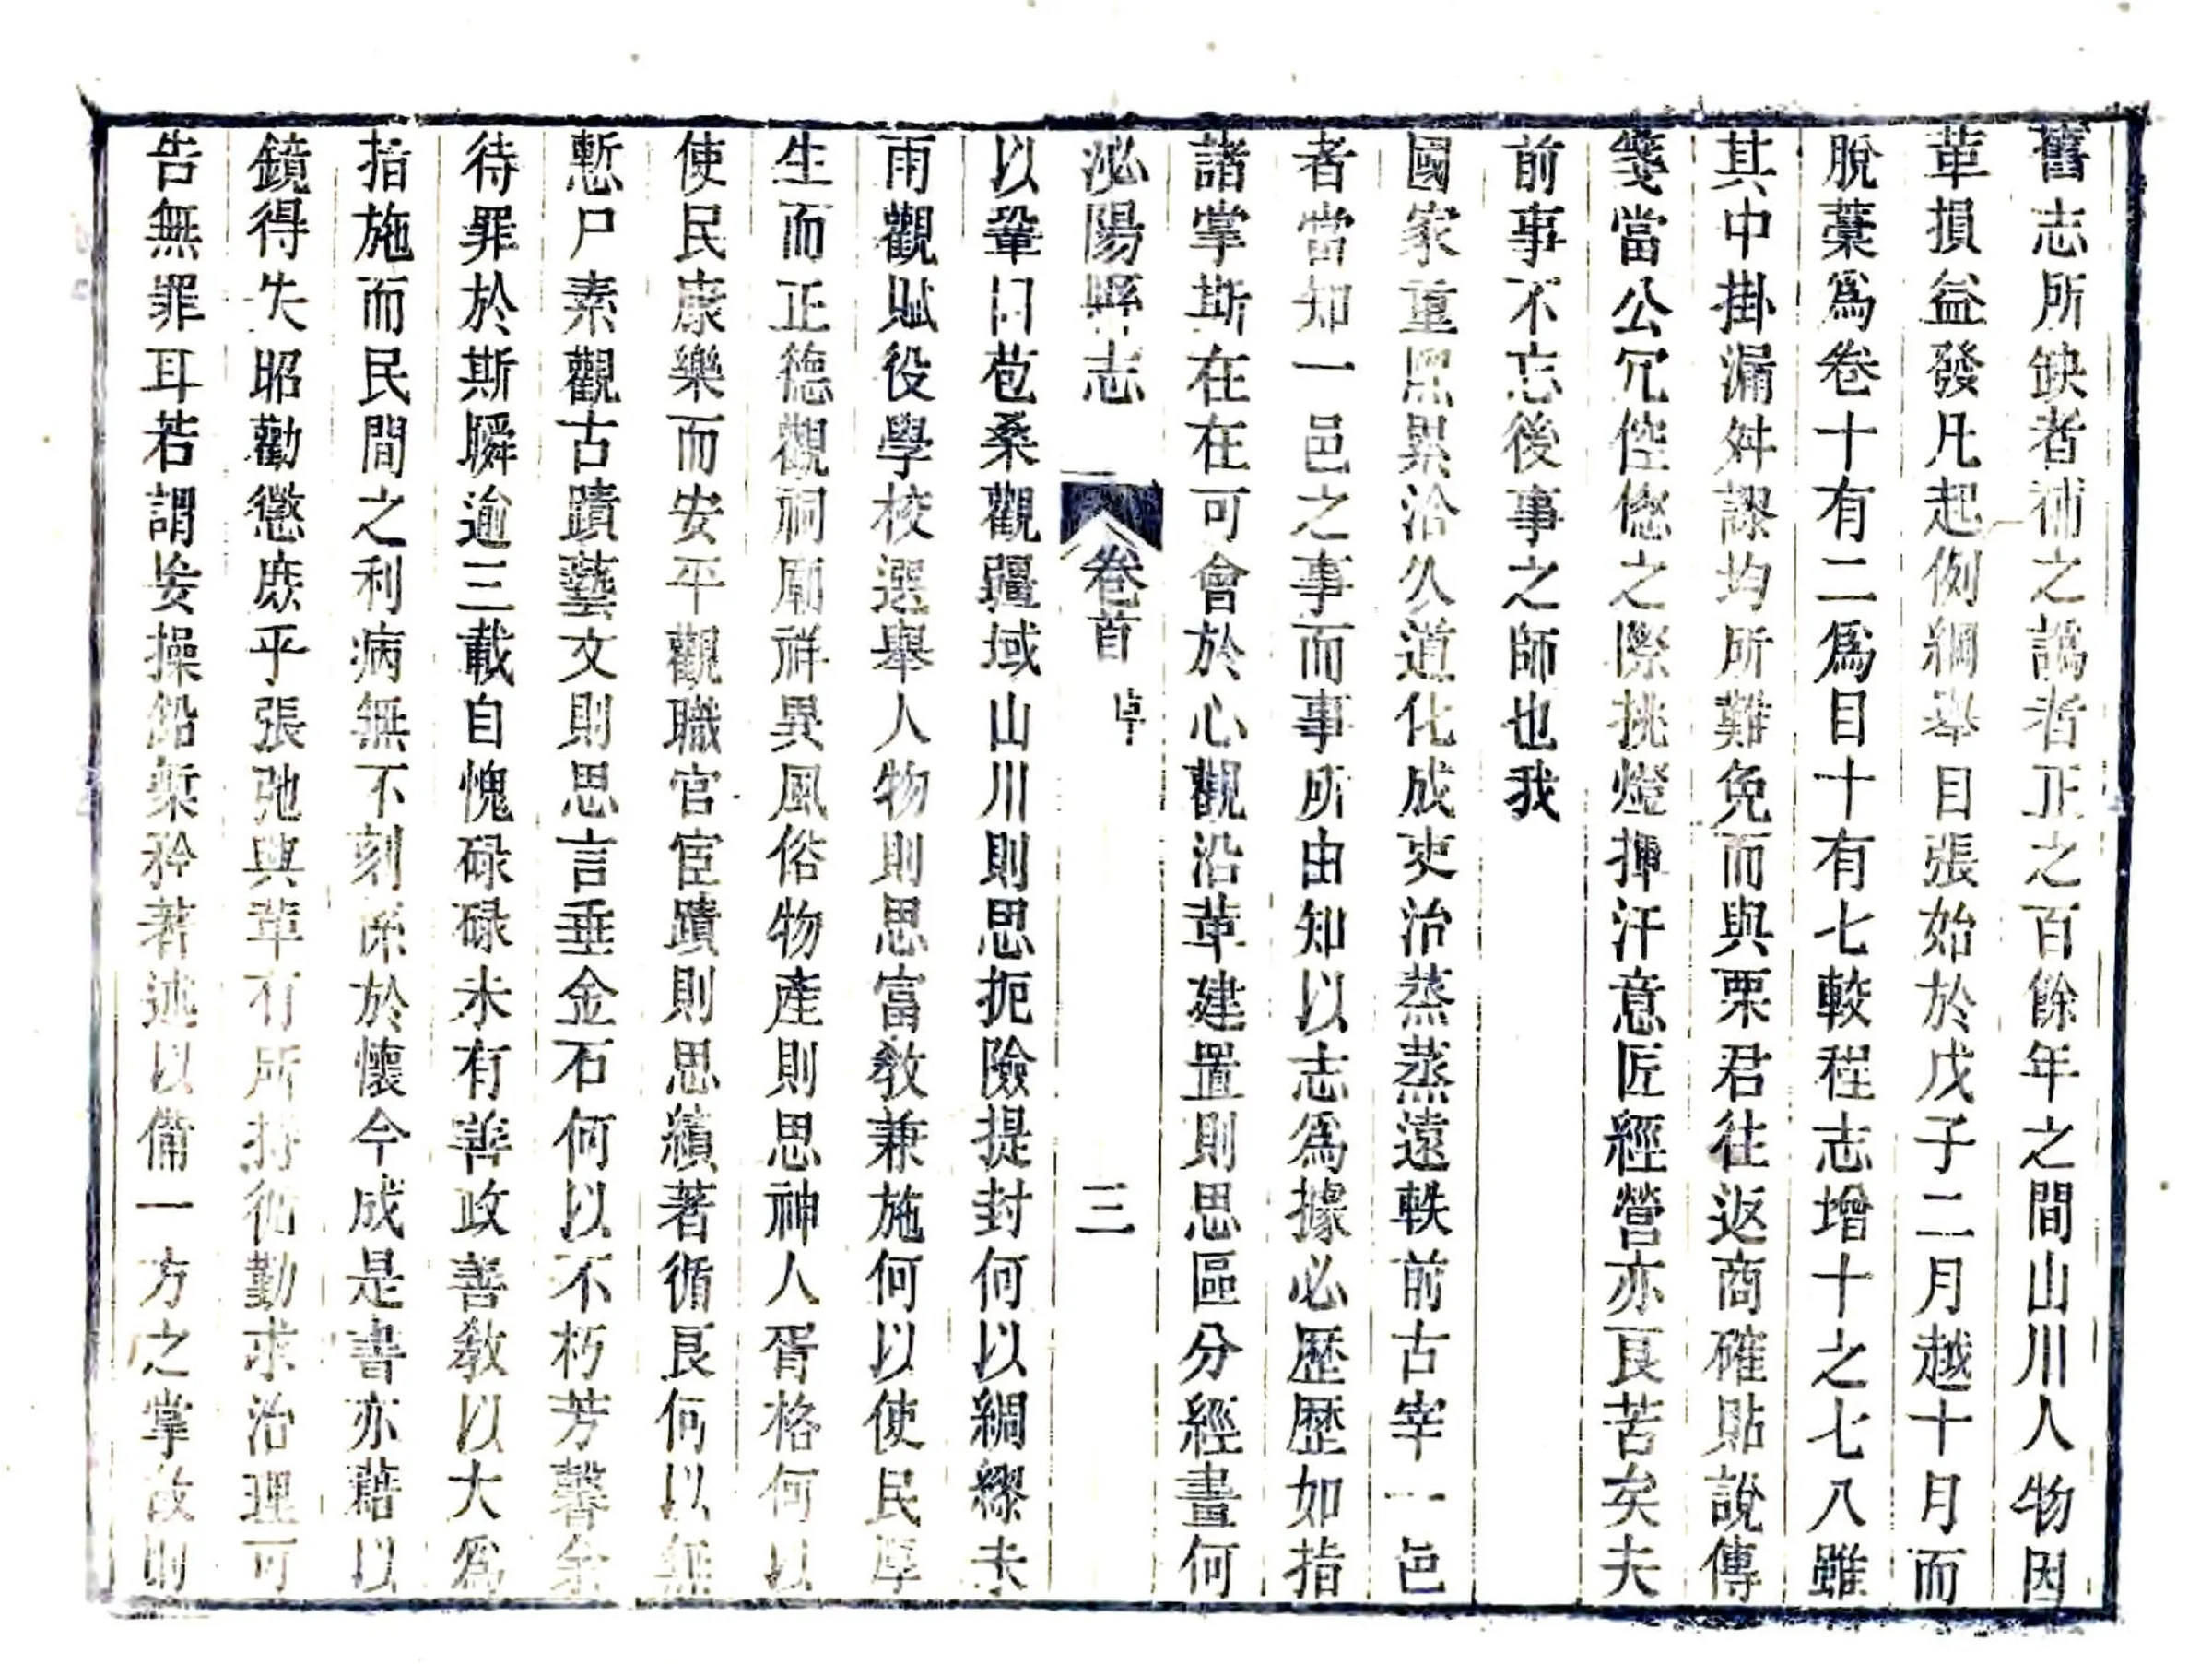 舊志所缺者補之譌者正之百餘年之間山川人物因
革損益發凡起例綱舉目張始於戊子二月越十月而
脫藁爲卷十有二爲目十有七較程志增十之七八雖
其中掛漏舛謬均所難免而與栗君往返商確貼說傳
箋當公冗倥傯之際挑燈揮汗意匠經營亦良苦矣夫
前事不忘後事之師也我
國家重熙累洽久道化成吏治蒸蒸遠軼前古宰一邑
者當知一邑之事而事所由知以志爲據必歷歷如指
諸掌斯在在可會於心觀沿革建置則思區分經畫何
泌陽縣志 卷首 三
以鞏固苞桑觀疆域山川則思扼險提封何以綢繆未
雨觀賦役學校選舉人物則思富敎兼施何以使民厚
生而正德觀祠廟祥異風俗物產則思神人胥格何以
使民康樂而安平觀職官宦蹟則思績著循良何以無
慙尸素觀古蹟藝文則思言垂金石何以不朽芳馨余
待罪於斯瞬逾三載自愧碌碌未有善政善敎以大爲
指施而民間之利病無不刻係於懷今成是書亦藉以
鏡得失昭勸懲庶乎張弛與革有所持循勤求治理可
告無罪耳若謂妄操鉛槧矜著述以備一方之掌故則